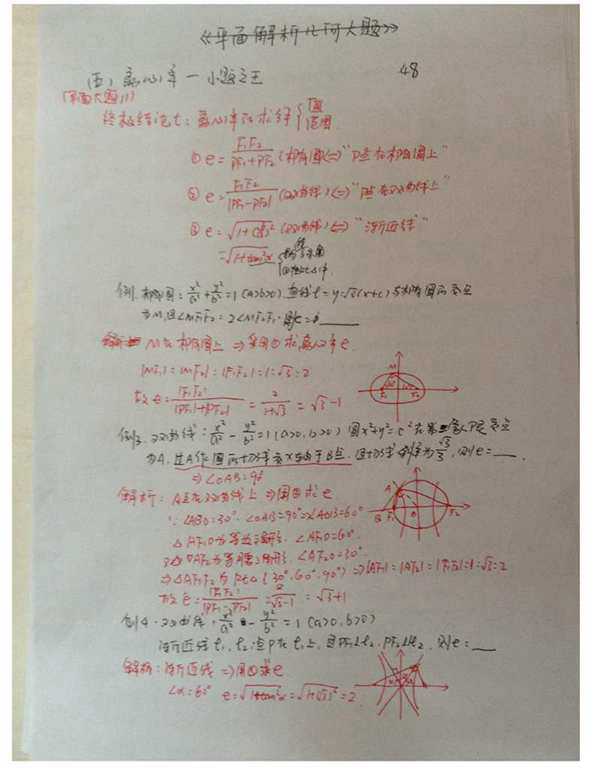 《平面解析几何大题》
(五) 离心率—小题之王 48
(平面大题11)
终极结论七：离心率e求解 { 值 范围
① e = F₁F₂/(PF₁+PF₂) (椭圆) ⇔ "P点在椭圆上"
② e = F₁F₂/|PF₁-PF₂| (双曲线) ⇔ "P点在双曲线上"
③ e = √(1+(b/a)²) (双曲线) ⇔ "渐近线"
= √(1+tan²α)
例1. 椭圆：x²/a²+y²/b²=1 (a>b>0) 直线l=y=√3(x+c) 与椭圆的交点
为M,且∠MF₁F₂=2∠MF₂F₁. 则e=
M在椭圆上 ⇒ 采用①求离心率e
|MF₁|:|MF₂|:|F₁F₂|=1:√3:2
故e=|F₁F₂|/(|PF₁|+|PF₂|)=2/(1+√3)=√3-1
例3. 双曲线：x²/a²-y²/b²=1 (a>0,b>0) 圆x²+y²=c²在第二象限交点
为A, 过A作圆的切线与x轴交于B点, 且切线斜率为√3/3, 则e=
⇒ ∠OAB=90°
解析：A点在双曲线上 ⇒ 用②求e
∵ ∠ABO=30°. ∠OAB=90° ⇒ ∠AOB=60°
△AF₁O为等边三角形. ∠AF₁O=60°.
△OAF₂为等腰三角形. ∠AF₂O=30°.
⇒ △AF₁F₂为Rt△{30°.60°.90°} ⇒ |AF₁|:|AF₂|:|F₁F₂|=1:√3:2
故e=|F₁F₂|/|PF₁-PF₂|=2/(√3-1)=√3+1
例4. 双曲线：x²/a²-y²/b²=1 (a>0,b>0)
渐近线l₁, l₂, 点P在l₁上, 且PF₁⊥l₂, PF₂∥l₂, 则e=
解析：渐近线 ⇒ 用③求e
∠α=60° e=√(1+tan²α)=√(1+(√3)²)=2.